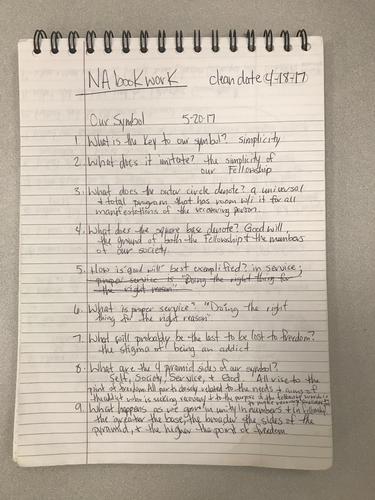 NA bookwork clean date 4-18-17
Our Symbol 5-20-17
1. What is the key to our symbol? simplicity
2. What does it imitate? the simplicity of
our Fellowship
3. What does the outer circle denote? a universal
+ total program that has room w/i it for all
manifestations of the recovering person.
4. What does the square base denote? Good will,
the ground of both the Fellowship + the members
of our society.
5. How is good will best exemplified? in service;
proper service is "Doing the right thing for
the right reason"
6. What is proper service? "Doing the right
thing for the right reason"
7. What will probably be the last to be lost to freedom?
the stigma of being an addict
8. What are the 4 pyramid sides of our symbol?
Self, Society, Service, + God All rise to the
point of freedom. All parts closely related to the needs + aims of
the addict who is seeking recovery + to the purpose of the fellowship
to make recovery available
9. What happens as we grow in unity in numbers + in fellowship
the greater the base, the broader the sides of the
pyramid, + the higher the point of freedom